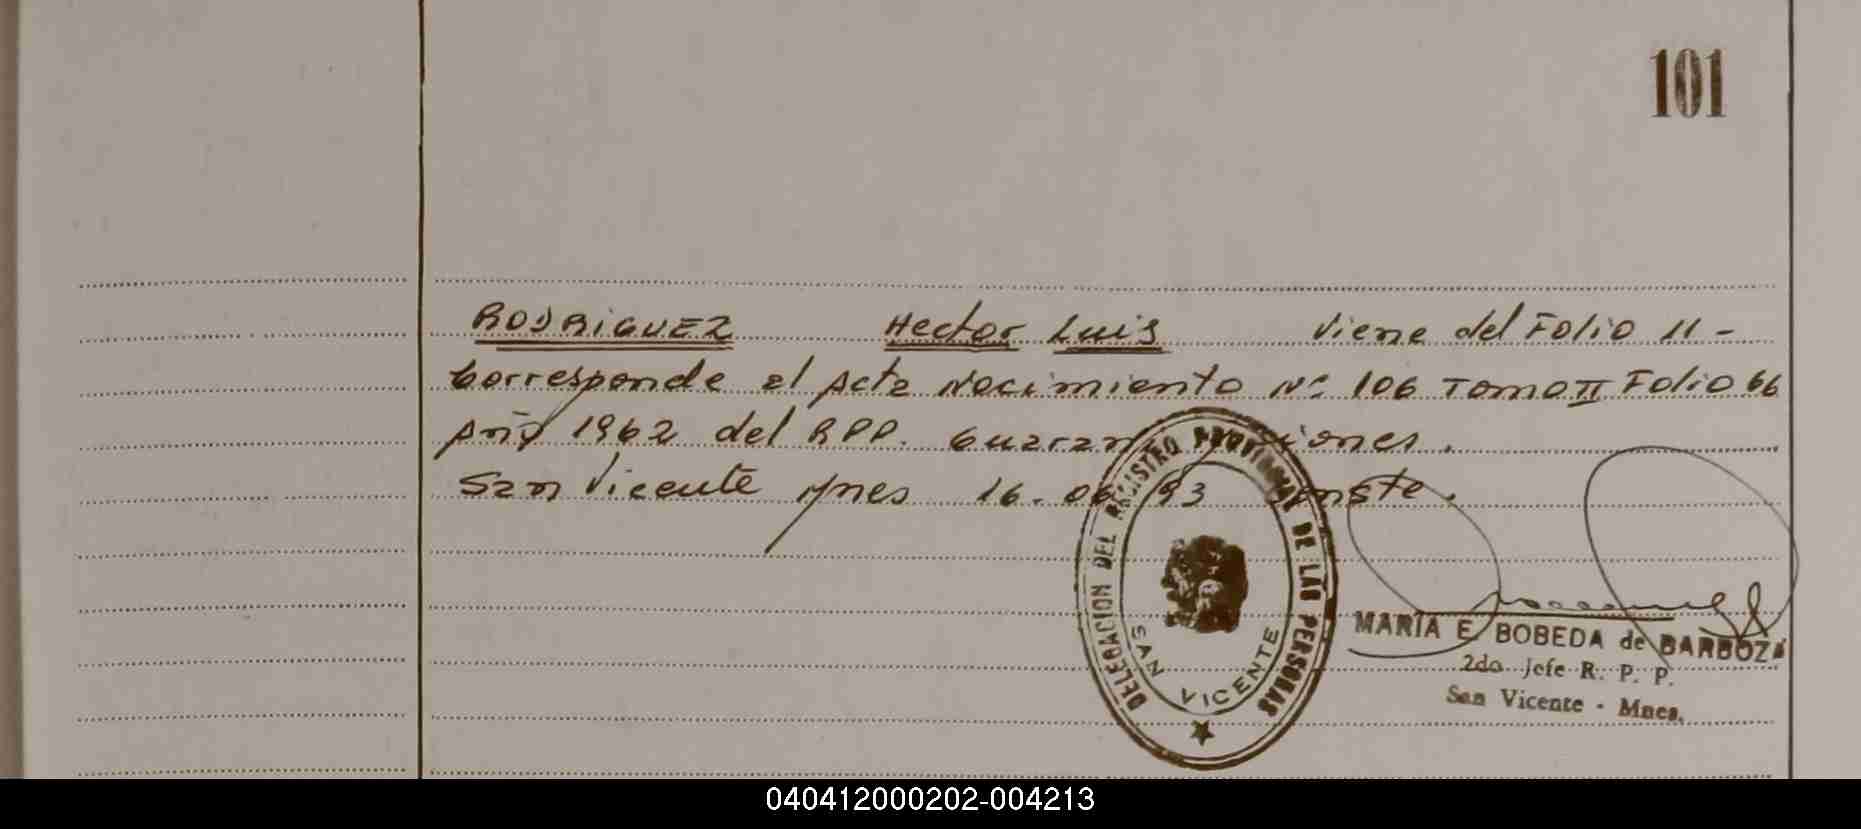 101
RODRIGUEZ Hector Luis Viene del Folio 11-
Corresponde al Acta Nacimiento Nº 106 Tomo II Folio 66
Año 1962 del RPP.
San Vicente Mnes 16. 06 93
DELEGACION DEL REGISTRO PROVINCIAL DE LAS PERSONAS
SAN VICENTE
MARIA E. BOBEDA de BARBOZA
2do Jefe R. P. P.
San Vicente - Mnes.
040412000202-004213